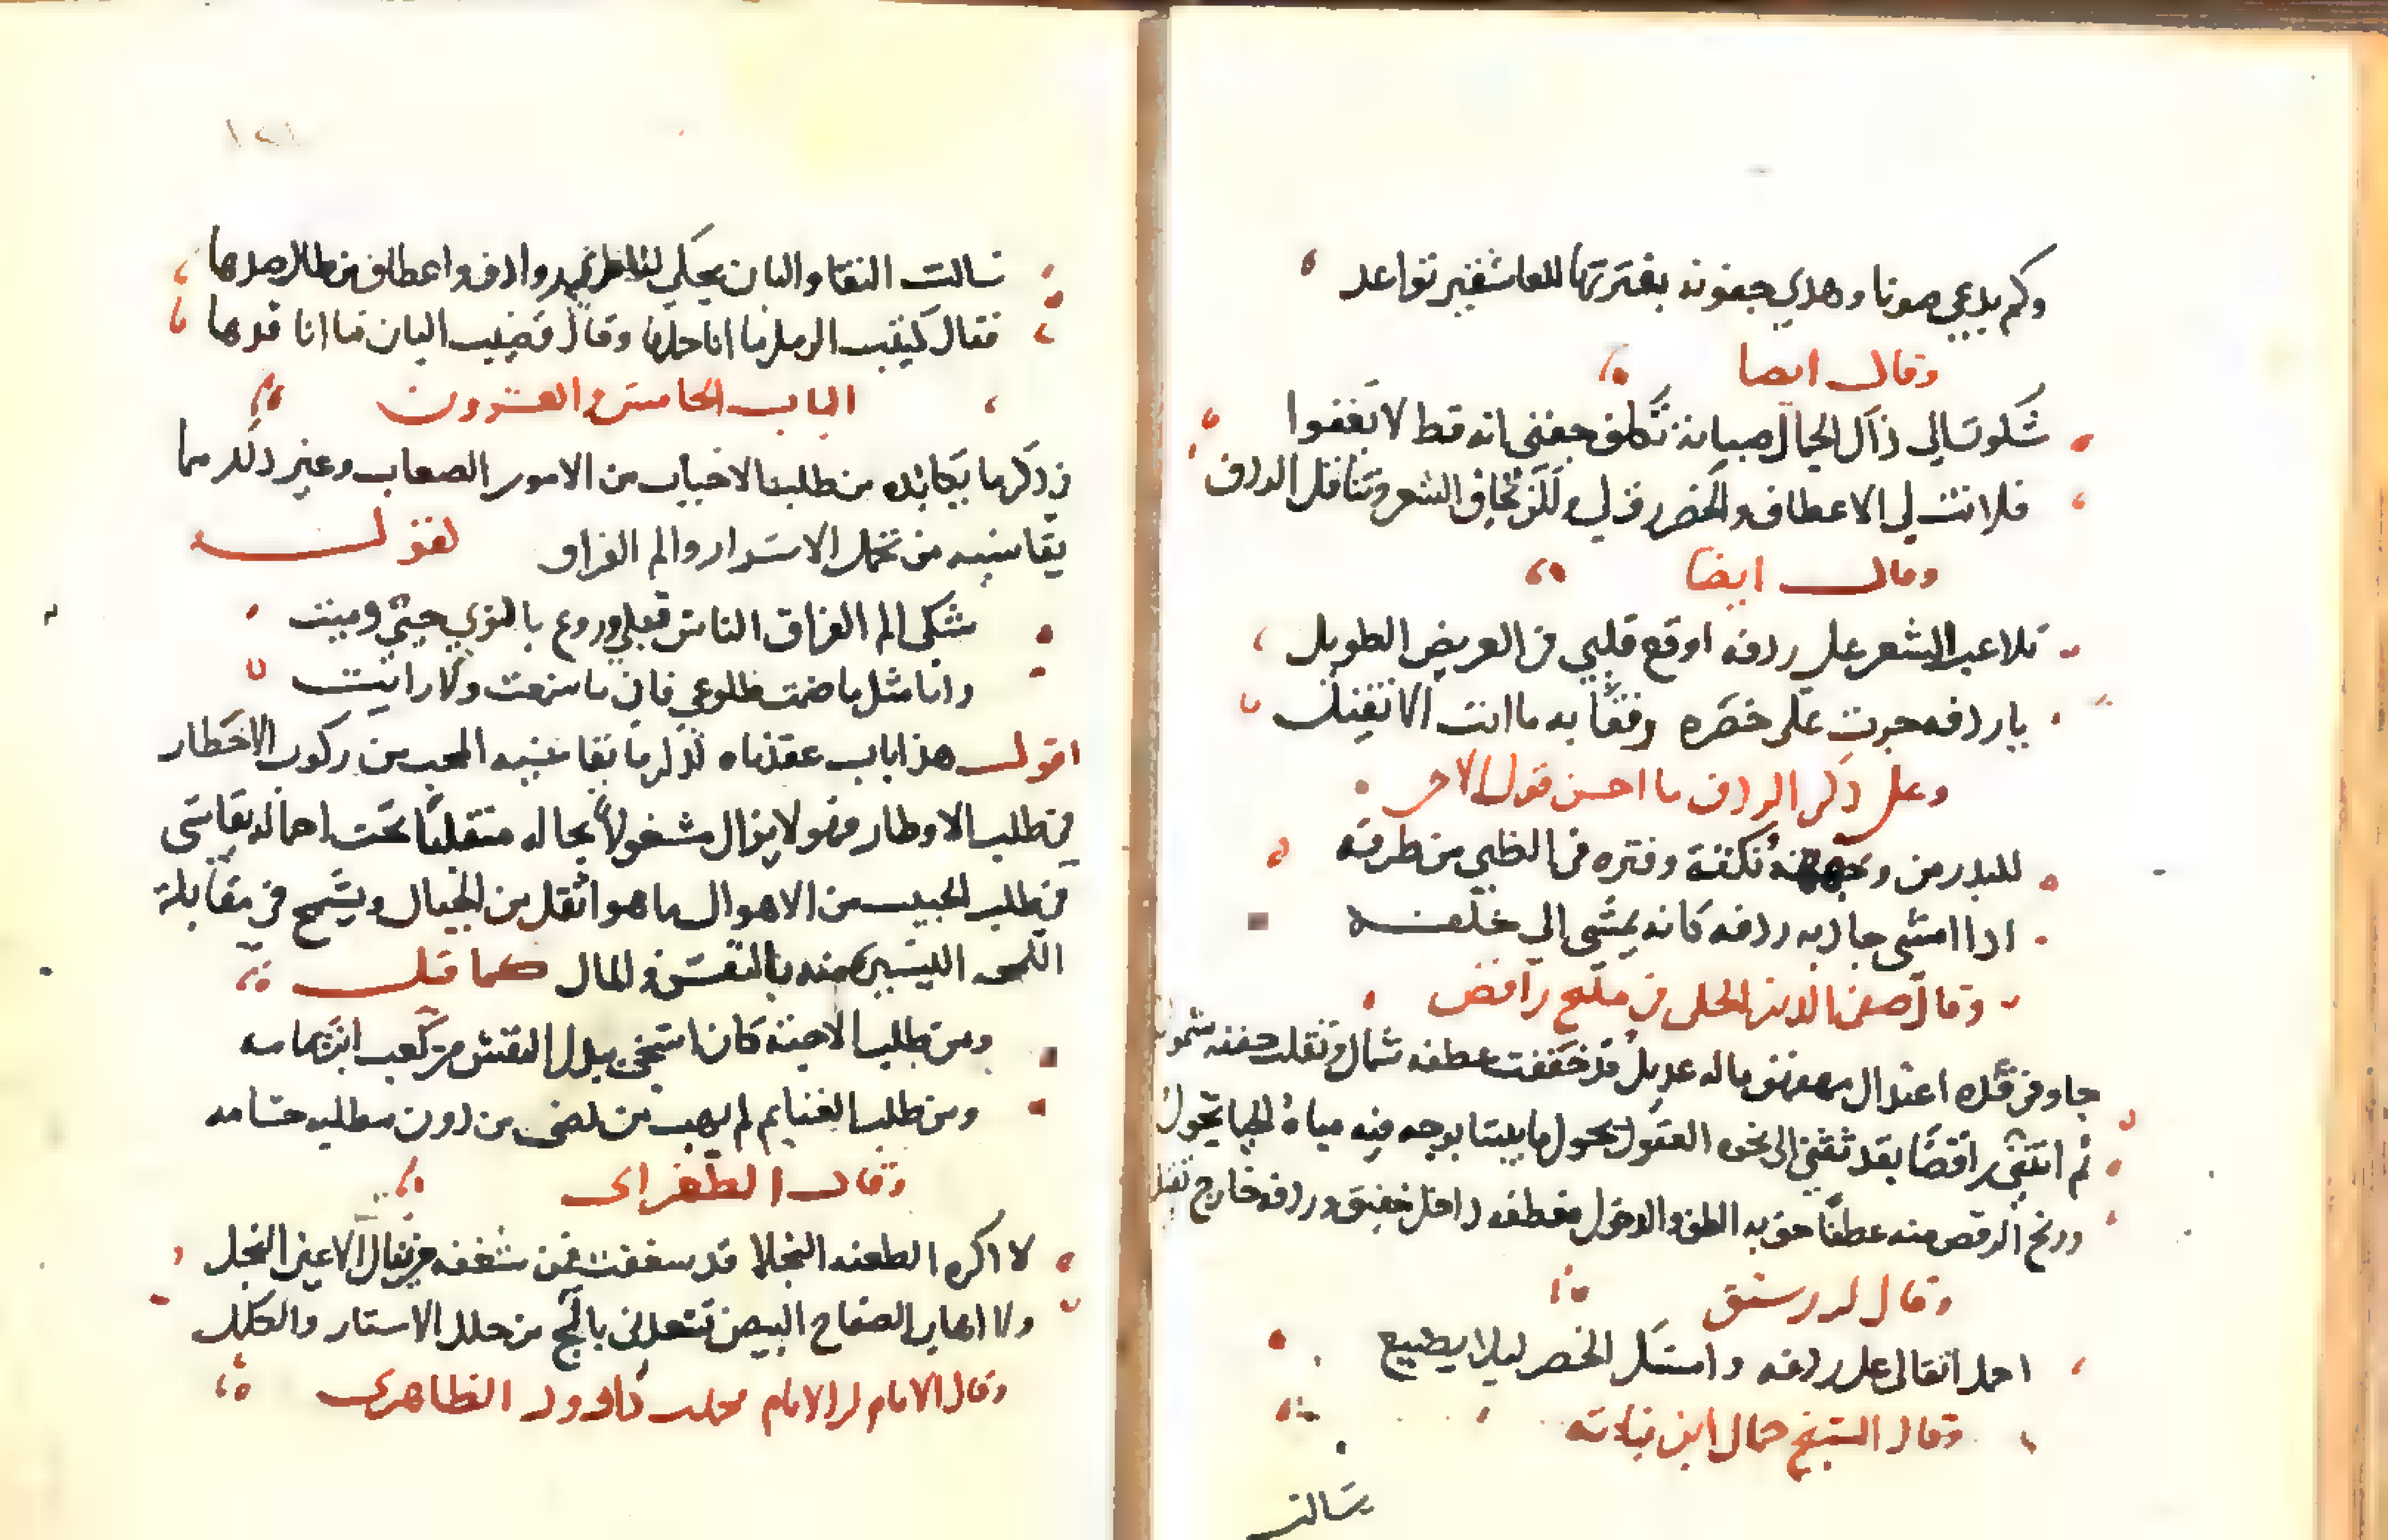 وكم يدعي صونا وهذي جفونه بفترتها للعاشقين تواعد
وقال ايضا
شكوت الي ذاك الجمال صبابة تكلف جفني انه قط لا يغفوا
فلا نت لي الاعطاف والخصر رق لي ولكن تجافي الشعر وتثاقل الردف
وقال ايضا
تلاعب الشعر علي ردفه اوقع قلبي في العريض الطويل
يا ردفه جرت علي خصره رفقا به ما انت الا ثقيل
وعلي ذكر الردف ما احسن قول الاخر
للبدر من وجهه نكتة وفتره في الظبي من طرفه
اذا امشي جاذبه ردفه كانه يمشي الي خلفه
وقال صفي الدين الحلي في مليح راقص
جا وفي قده اعتدال مهفهف ما له عديل قد خففت عطفه شمال وثقلت جفنه شمول
ثم انثني راقصا بقد تثني الي نحوه العقول يجول ما بيننا بوجه فيه مياه الحيا تجول
ورنح الرقص منه عطفا حف به اللطف والدخول فعطفه داخل خفيف وردفه خارج ثقيل
وقال بن رشيق
احمل اثقالي علي ردفه وامسك الخصر ليلا يضيع
وقال الشيخ جمال ابن نباته
سالت
سالت النقا والبان يحكي لناظري روادف واعطاف من طال صدها
فقال كثيب الرمل ما انا حملها وقال قضيب البان ما انا قدها
الباب الخامس والعشرون
في ذكر ما يكابده من طلب الاحباب من الامور الصعاب وغير ذلك مما
يقاسيه من تحمل الاسرار والم الفراق لقول
شكي الم الفراق الناس قبلي وروع بالنوي حي وميت
واما مثل ما ضمت ضلوعي فاني ما سمعت ولا رايت
اقول هذا باب عقدناه لذكر ما يقاسيه المحب من ركوب الاخطار
في طلب الاوطار فهو لا يزال مشغولا بحاله متقلبا تحت احماله يقاسي
في طلب الحبيب من الاهوال ما هو اثقل من الجبال ويسمح في مقابلة
اليسير منه بالنفس والمال كما قيل
ومن طلب الاحبة كان اسخي ببذل النفس من كعب ابن مامه
ومن طلب الغنايم لم يهب من دون مطلبه حسامه
وقال الطغراي
لا اكره الطعنه النجلا قد شفعت من نبال الاعين النجل
ولا اهاب الصفاح البيض تسعدني باللمح من خلل الاستار والكلل
وقال الامام بن الامام محمد بن داوود الظاهري